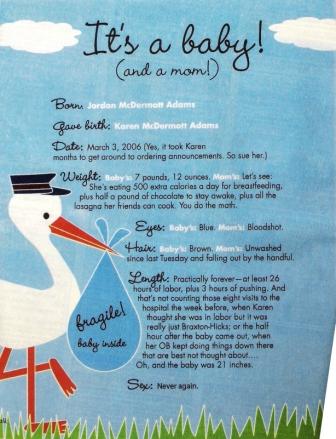 It's a baby!
(and a mom!)
Born: Jordan McDermott Adams
Gave birth: Karen McDermott Adams
Date: March 3, 2006 (Yes, it took Karen
months to get around to ordering announcements. So sue her.)
Weight: Baby's: 7 pounds, 12 ounces. Mom's: Let's see:
She's eating 500 extra calories a day for breastfeeding,
plus half a pound of chocolate to stay awake, plus all the
lasagna her friends can cook. You do the math.
Eyes: Baby's: Blue. Mom's: Bloodshot.
Hair: Baby's: Brown. Mom's: Unwashed
since last Tuesday and falling out by the handful.
Length: Practically forever—at least 26
hours of labor, plus 3 hours of pushing. And
that's not counting those eight visits to the
hospital the week before, when Karen
thought she was in labor but it was
really just Braxton-Hicks; or the half
hour after the baby came out, when
her OB kept doing things down there
that are best not thought about....
Oh, and the baby was 21 inches.
Sex: Never again.
fragile!
baby inside